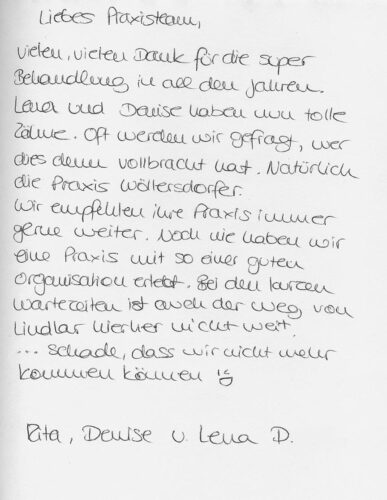 Liebes Praxisteam,
vielen, vielen Dank für die super
Behandlung in all den Jahren.
Lena und Denise haben nun tolle
Zähne. Oft werden wir gefragt, wer
dies denn vollbracht hat. Natürlich
die Praxis Wöllersdorfer.
Wir empfehlen ihre Praxis immer
gerne weiter. Noch nie haben wir
eine Praxis mit so einer guten
Organisation erlebt. Bei den kurzen
Wartezeiten ist auch der Weg von
Lindlar hierher nicht weit.
... Schade, dass wir nicht mehr
kommen können
Rita, Denise u. Lena D.